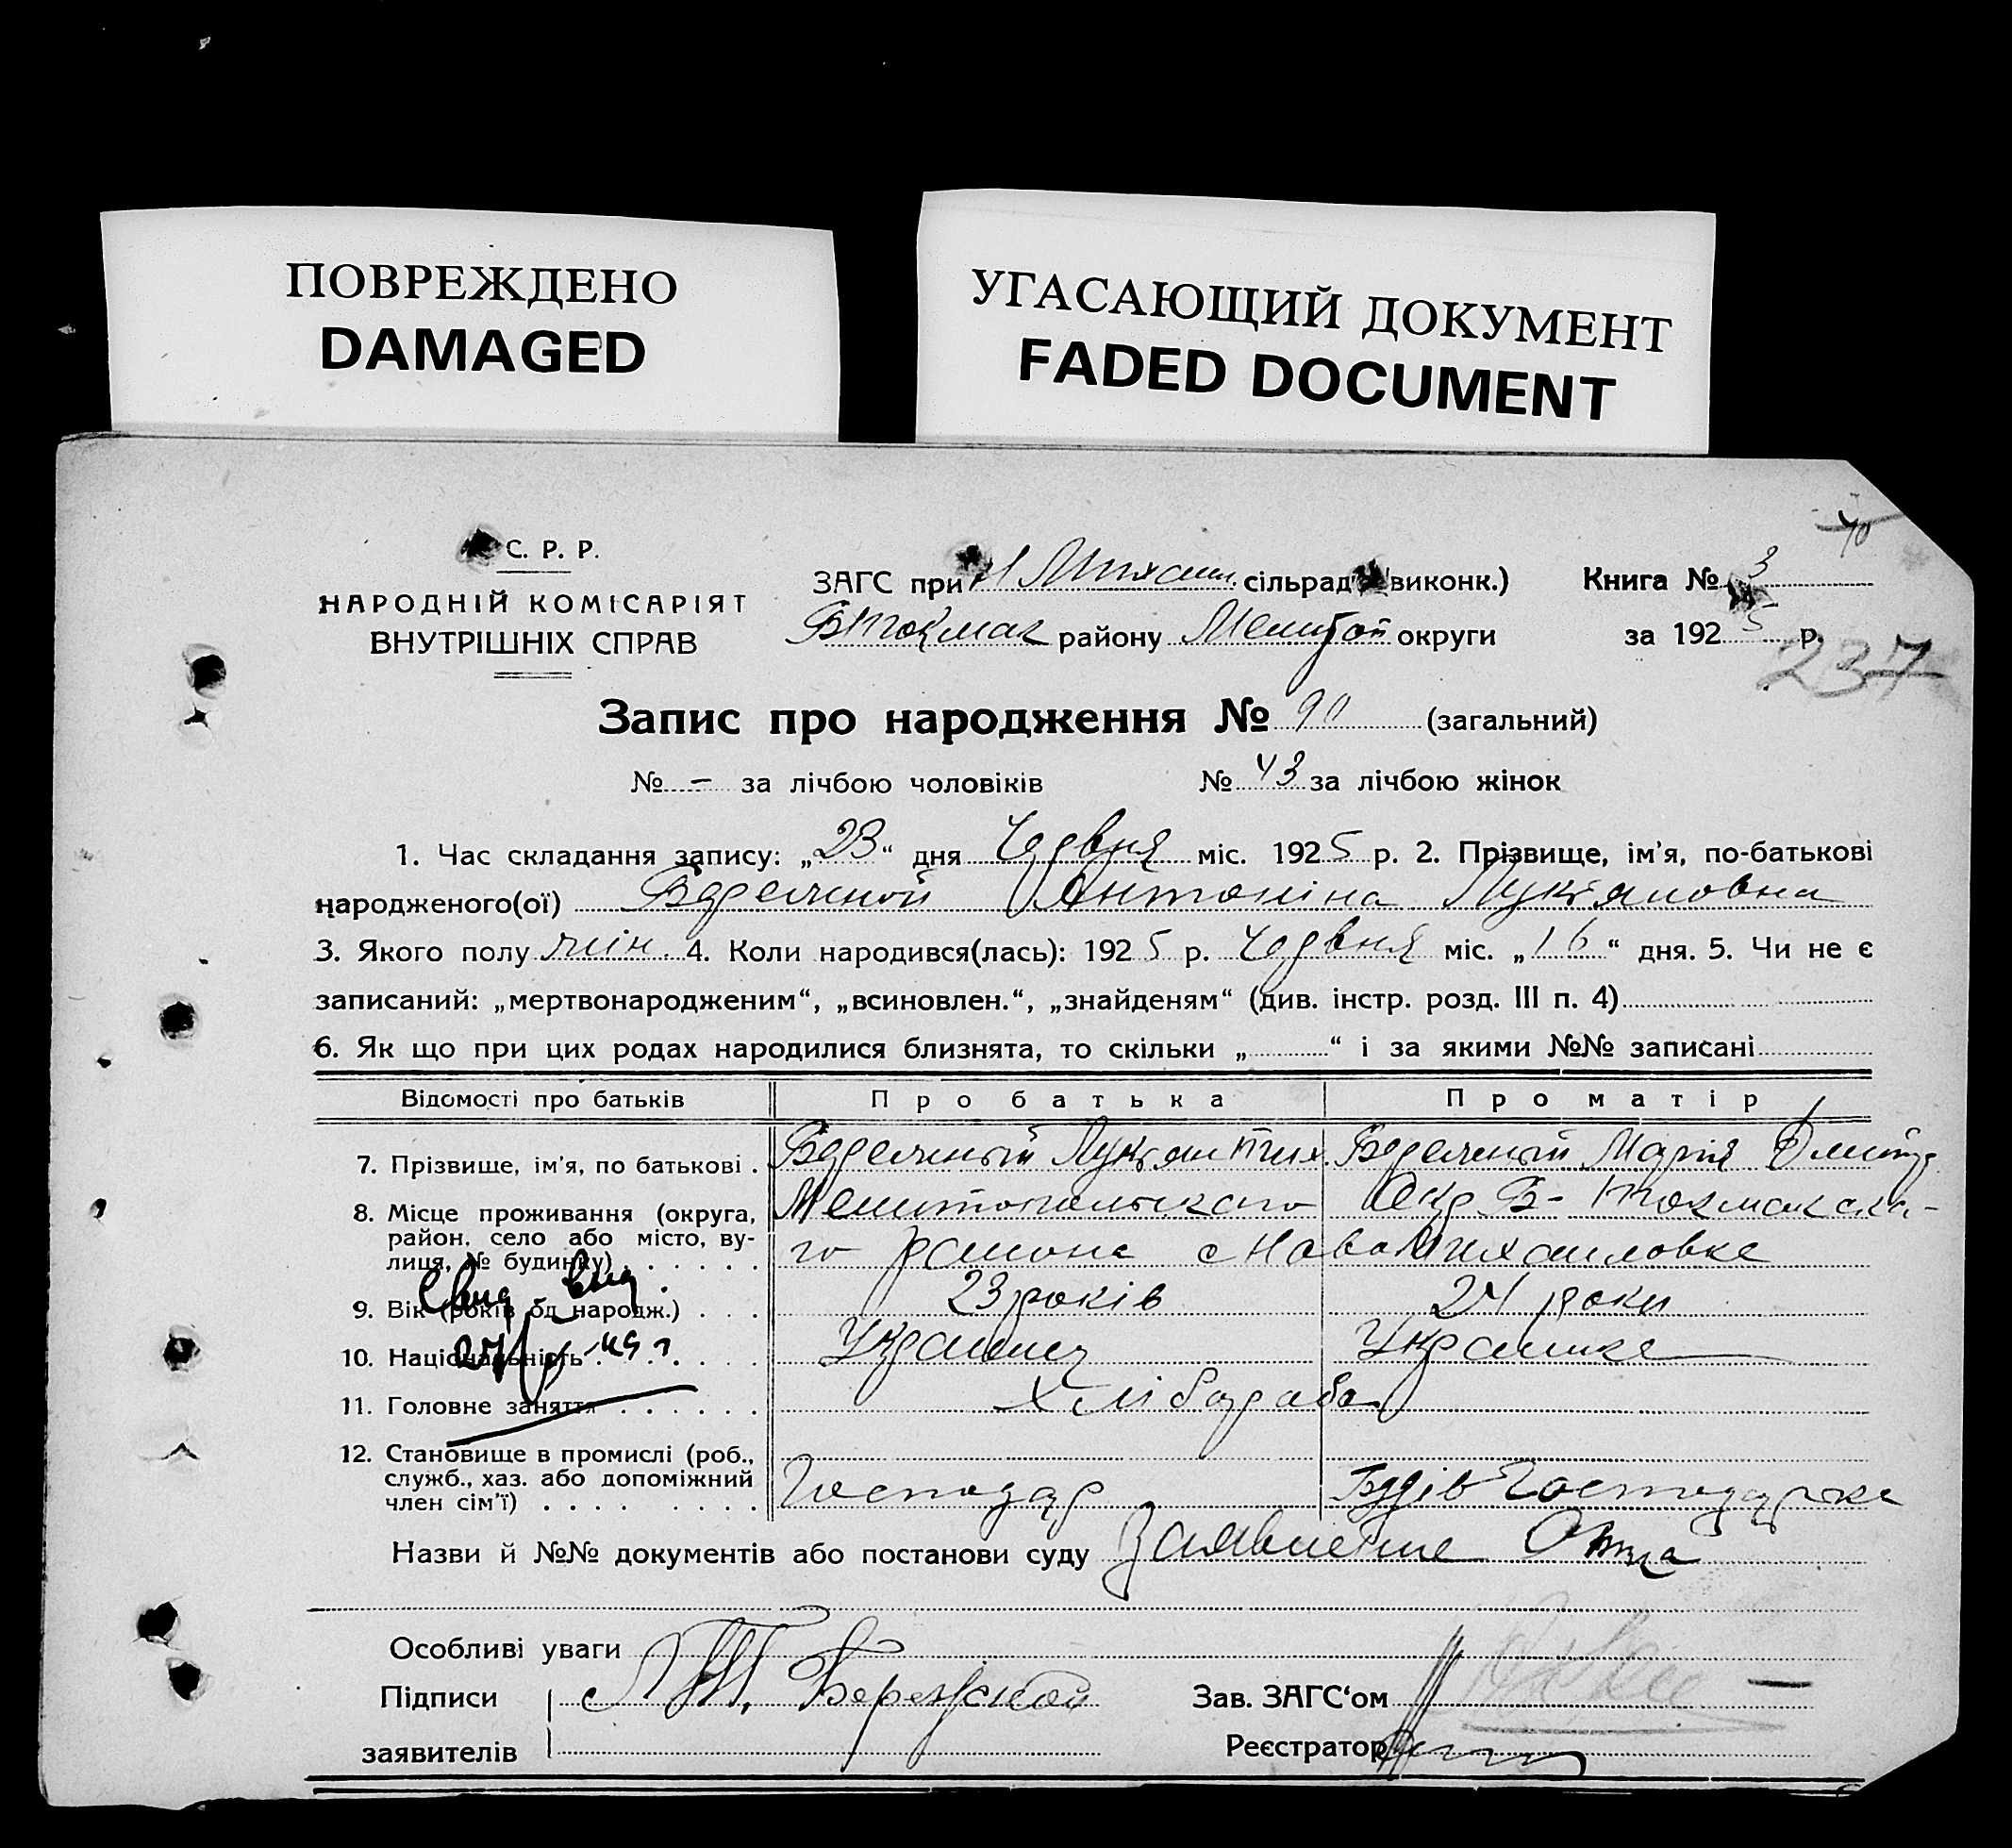 ПОВРЕЖДЕНО
DAMAGED
УГАСАЮЩИЙ ДОКУМЕНТ
FADED DOCUMENT
40
С. Р. Р.
НАРОДНІЙ КОМІСАРІЯТ
ВНУТРІШНІХ СПРАВ
ЗАГС при Н Михаил. сільрад виконк.)
Книга № 3
ВТокмак району Мелитоп округи
за 192 5 р.
237
Запис про народження № 90 (загальний)
№ - за лічбою чоловіків № 43 за лічбою жінок
1. Час складання запису: „23“ дня Червня міс. 1925 р. 2. Прізвище, ім’я, по-батькові
народженого(ої) Антоніна Лукіяновна
3. Якого полу жін. 4. Коли народився(лась): 1925 р. Червня міс. „16“ дня. 5. Чи не є
записаний: „мертвонародженим“, „всиновлен.“, „знайденям“ (див. інстр. розд. III п. 4)
6. Як що при цих родах народилися близнята, то скільки „ “ і за якими №№ записані
Відомості про батьків Про батька Про матір
7. Прізвище, ім’я, по батькові . Лукіян Марія
8. Місце проживання (округа, район, село або місто, вулиця, № будинку) . . . . . Мелитопольского Окр Б- Токмакска-
го района с Нова Михаиловка
9. Вік (років од народж.) . . . 23 років 24 роки
10. Національність . . . . . . . Украинец Украинка
11. Головне заняття . . . . . . Хлібороба
12. Становище в промислі (роб.,
служб., хаз. або допоміжний
член сім’ї) . . . . . . . . . Господар Господарка
Назви й №№ документів або постанови суду Заявление Отца
Особливі уваги
Підписи
Зав. ЗАГС‘ом
заявителів
Реєстратор